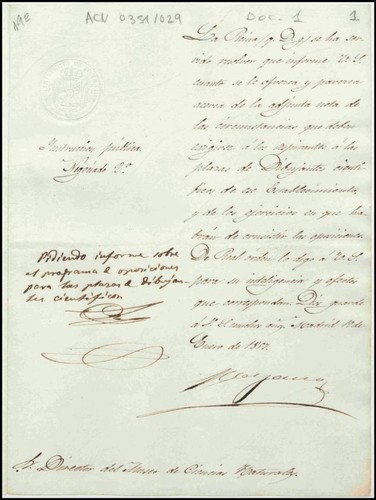 ACN 0351/029
DOC. 1
1
La Reina (q. D. g.) se ha ser-
vido resolver que informe V. S.
cuanto se le ofrezca y parezca
acerca de la adjunta nota de
las circunstancias que deben
exigirse á los aspirantes á las
plazas de Dibujantes cientí-
ficos de ese Establecimiento,
y de los ejercicios en que ha-
brán de consistir las oposiciones.
De Real orden lo digo á V. S.
para su inteligencia y efectos
que correspondan. Dios guarde
á V. S. muchos años. Madrid
Enero de
Instruccion pública.
Negociado 2º
Pidiendo informe sobre
el programa de oposiciones
para las plazas de dibujan-
tes científicos
Sr. Director del Museo de Ciencias Naturales.